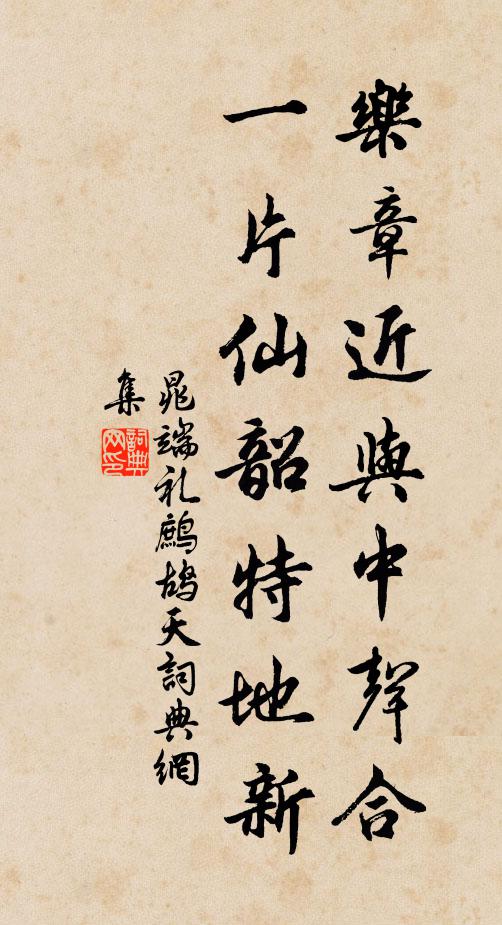 樂章近與中聲合
一片仙韶特地新
晁端礼鷓鴣天詞典網
集
詞典
网印